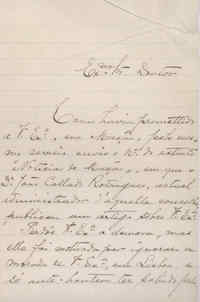 Exmo Sr. Doutor
Como havia promettido
a V. Exa, em Monção, pelo mes-
mo correio envio o nº. do
"Noticia de Monção", em que o
Sr. José Callado Rodrigues, actual
administrador d'aquelle concelho
publicou um artigo sobre V. Exa.
Perdôe V. Exa a demora, mas
ella foi motivada por ignorar a
morada de V. Exa, em Lisboa, e
só ante-hontem ter sabido pelo